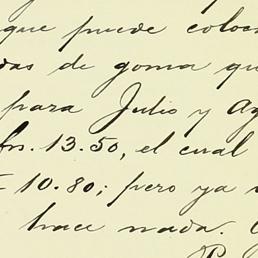 que puede coloc
das de goma qu
para Julio y Ag
frs. 13.50, el cual
10.80; pero ya
hace nada.